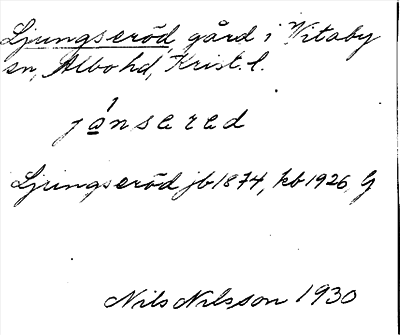 Ljungseröd, gård i Vitaby
sn, Albo hd, Krist. l.
jánsered
Ljungseröd jb 1874, kb 1926, G
Nils Nilsson 1930